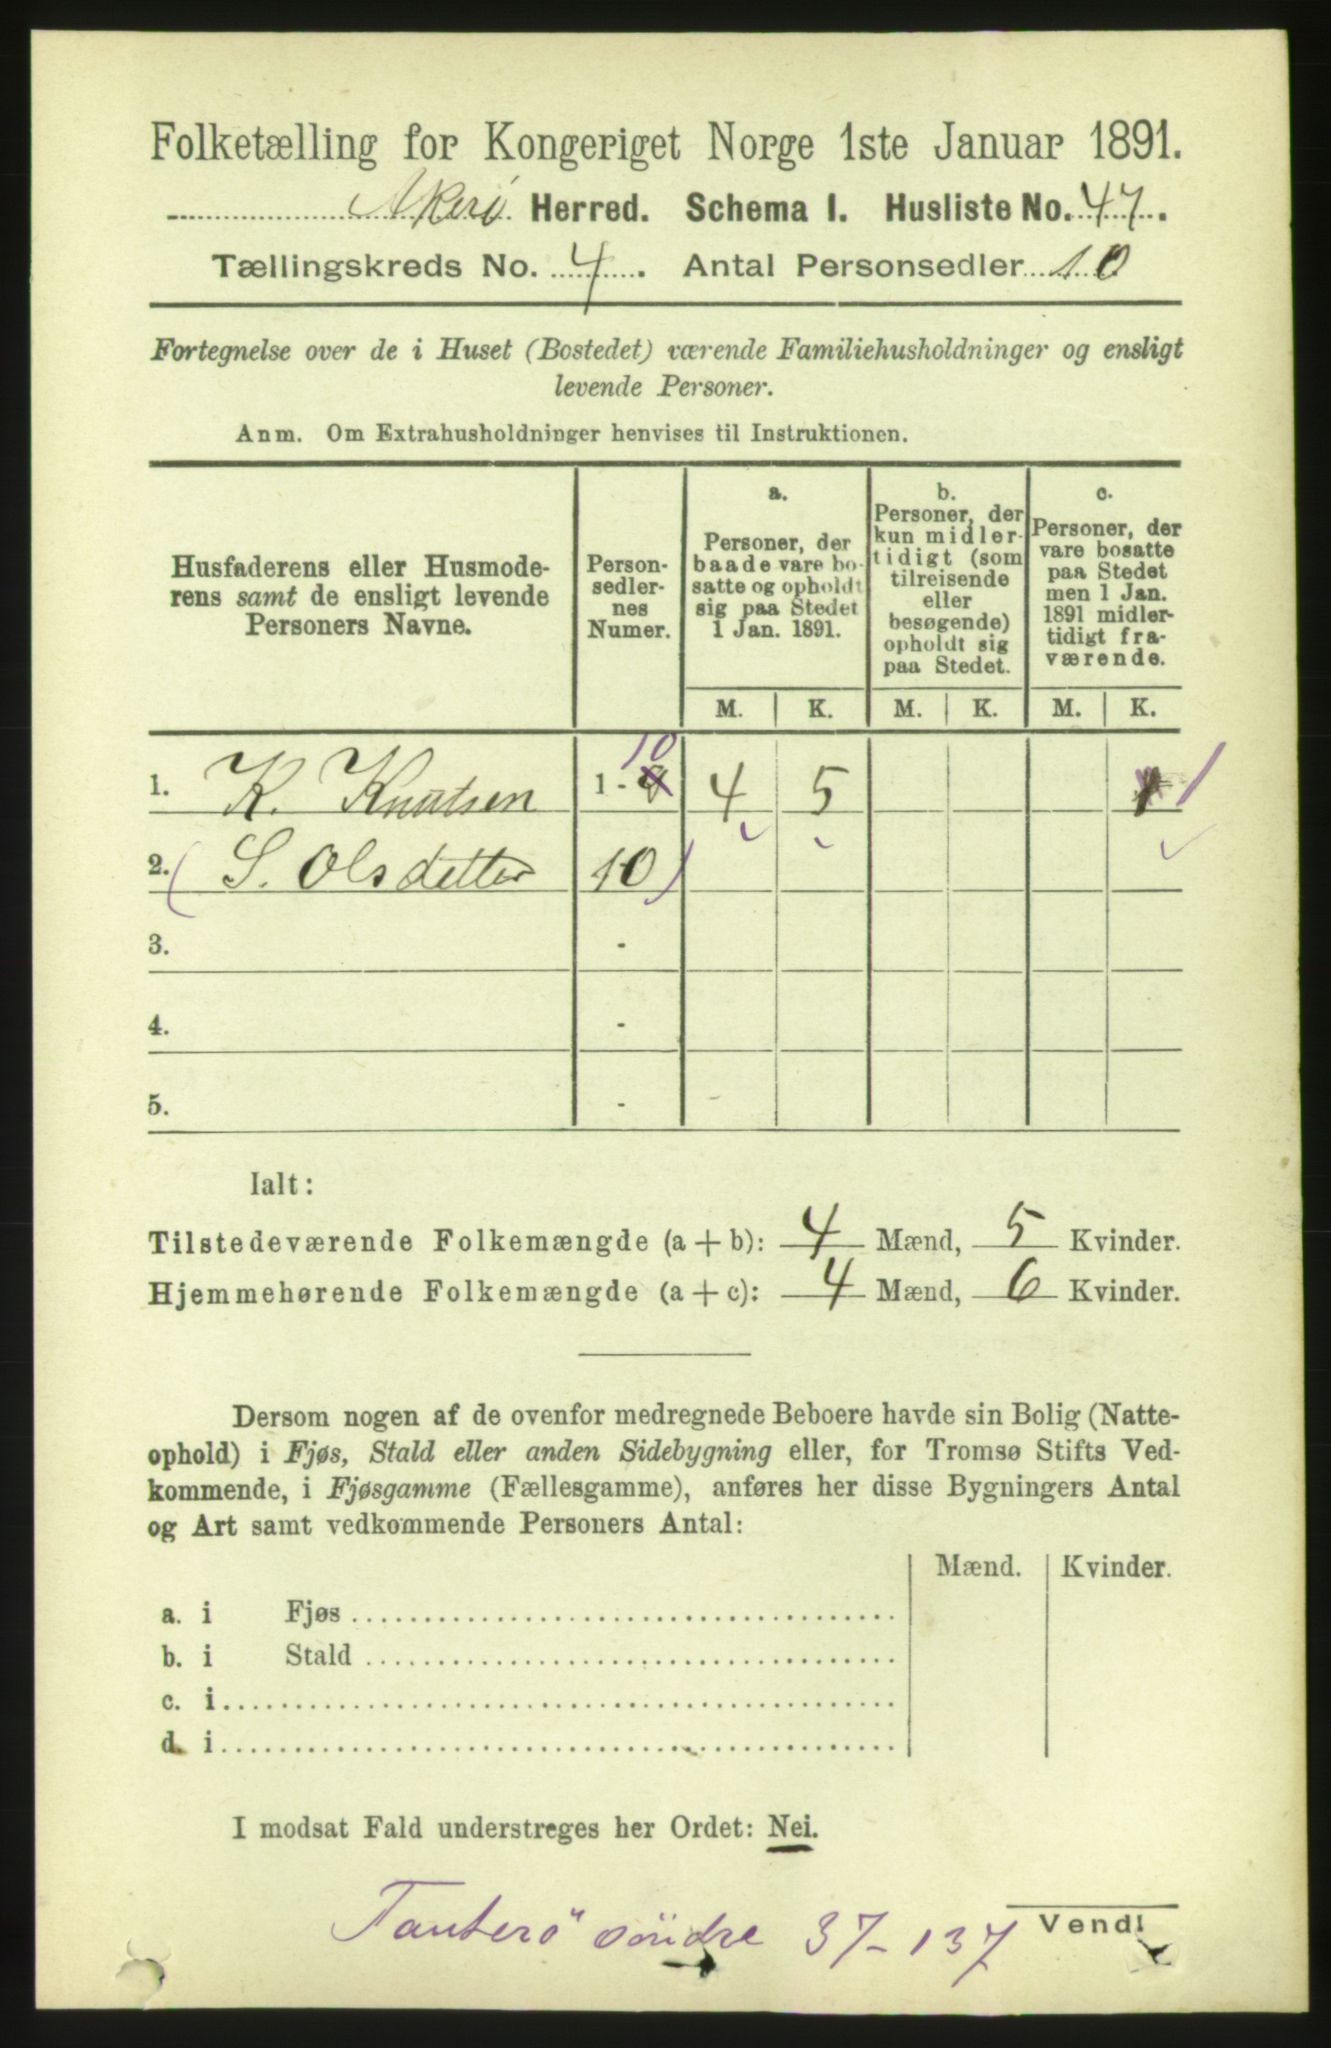 Folketælling for Kongeriget Norge 1ste Januar 1891.
Akerö Herred. Schema I. Husliste No. 47.
Tællingskreds No. 4. Antal Personsedler 10
Fortegnelse over de i Huset (Bostedet) værende Familiehusholdninger og ensligt
levende Personer.
Anm. Om Extrahusholdninger henvises til Instruktionen.
Husfaderens eller Husmode-
rens samt de ensligt levende
Personers Navne.
Person-
sedler-
nes
Numer.
a.
Personer, der
baade vare bo-
satte og opholdt
sig paa Stedet
1 Jan. 1891.
b.
Personer, der
kun midler-
tidigt (som
tilreisende
eller
besøgende)
opholdt sig
paa Stedet.
c.
Personer, der
vare bosatte
paa Stedet
men 1 Jan.
1891 midler-
tidigt fra-
værende.
M. K. M. K. M. K.
1. K. Knutsen 1 - 9 10 4 5 1 1
2. (S. Olsdetter 10)
3. -
4. -
5. -
Ialt:
Tilstedeværende Folkemængde (a + b): 4 Mænd, 5 Kvinder.
Hjemmehørende Folkemængde (a + c): 4 Mænd, 6 Kvinder.
Dersom nogen af de ovenfor medregnede Beboere havde sin Bolig (Natte-
ophold) i Fjøs, Stald eller anden Sidebygning eller, for Tromsø Stifts Ved-
kommende, i Fjøsgamme (Fællesgamme), anføres her disse Bygningers Antal
og Art samt vedkommende Personers Antal:
Mænd. Kvinder.
a. i Fjøs
b. i Stald
c. i
d. i
I modsat Fald understreges her Ordet: Nei.
Vend!
Tauterö söndre 37-137